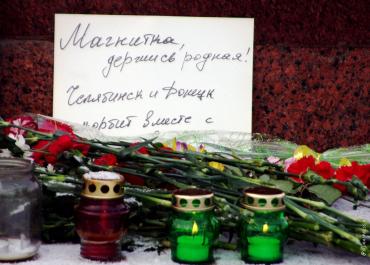 Магнитка,
держись родная!
Челябинск и Донецк
скорбит вместе с